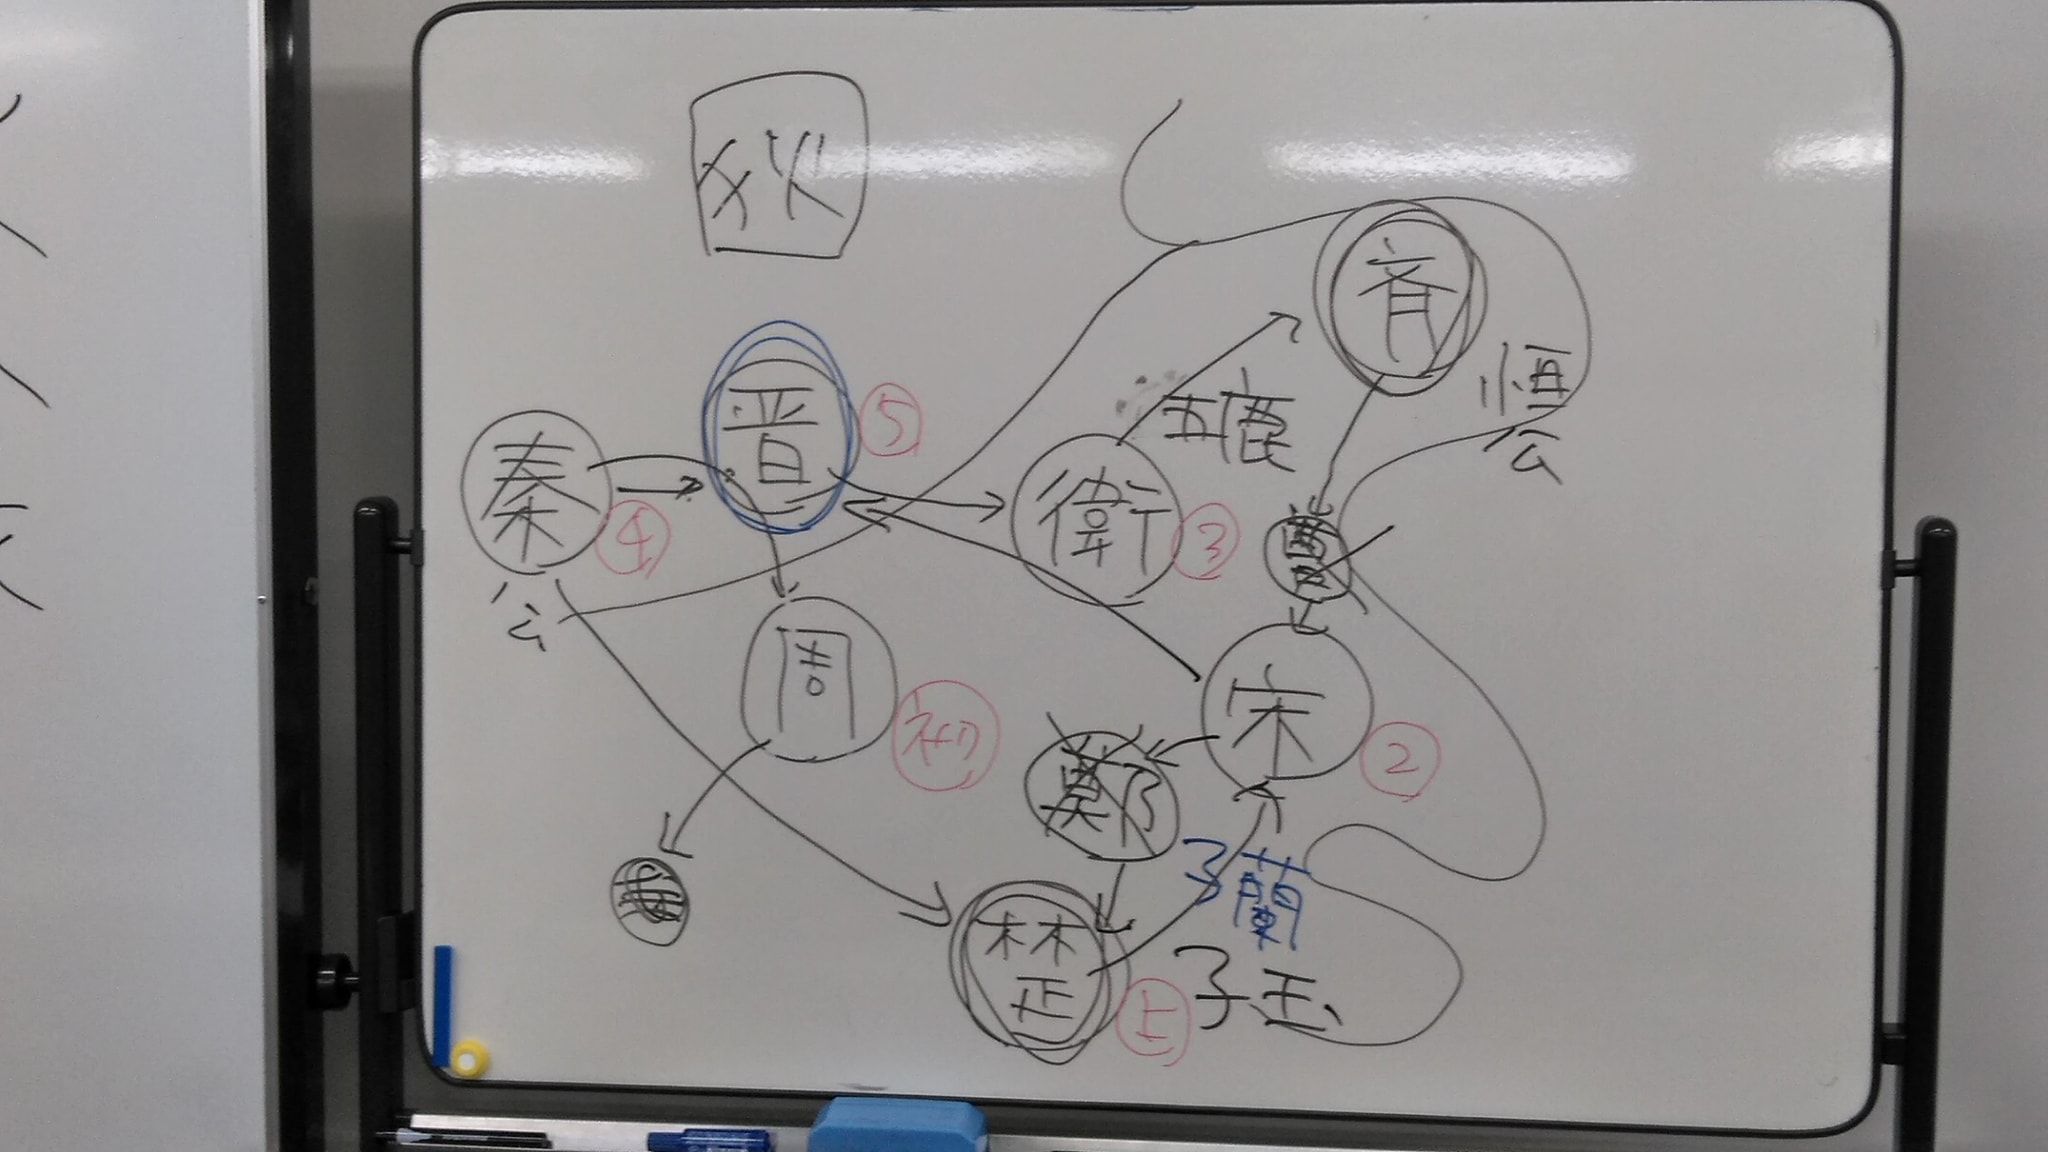 狄
斉
桓
公
五鹿
晋
⑤
秦
④
公
衛
③
曹
周
初
宋
②
鄭
子蘭
楚
上
子玉